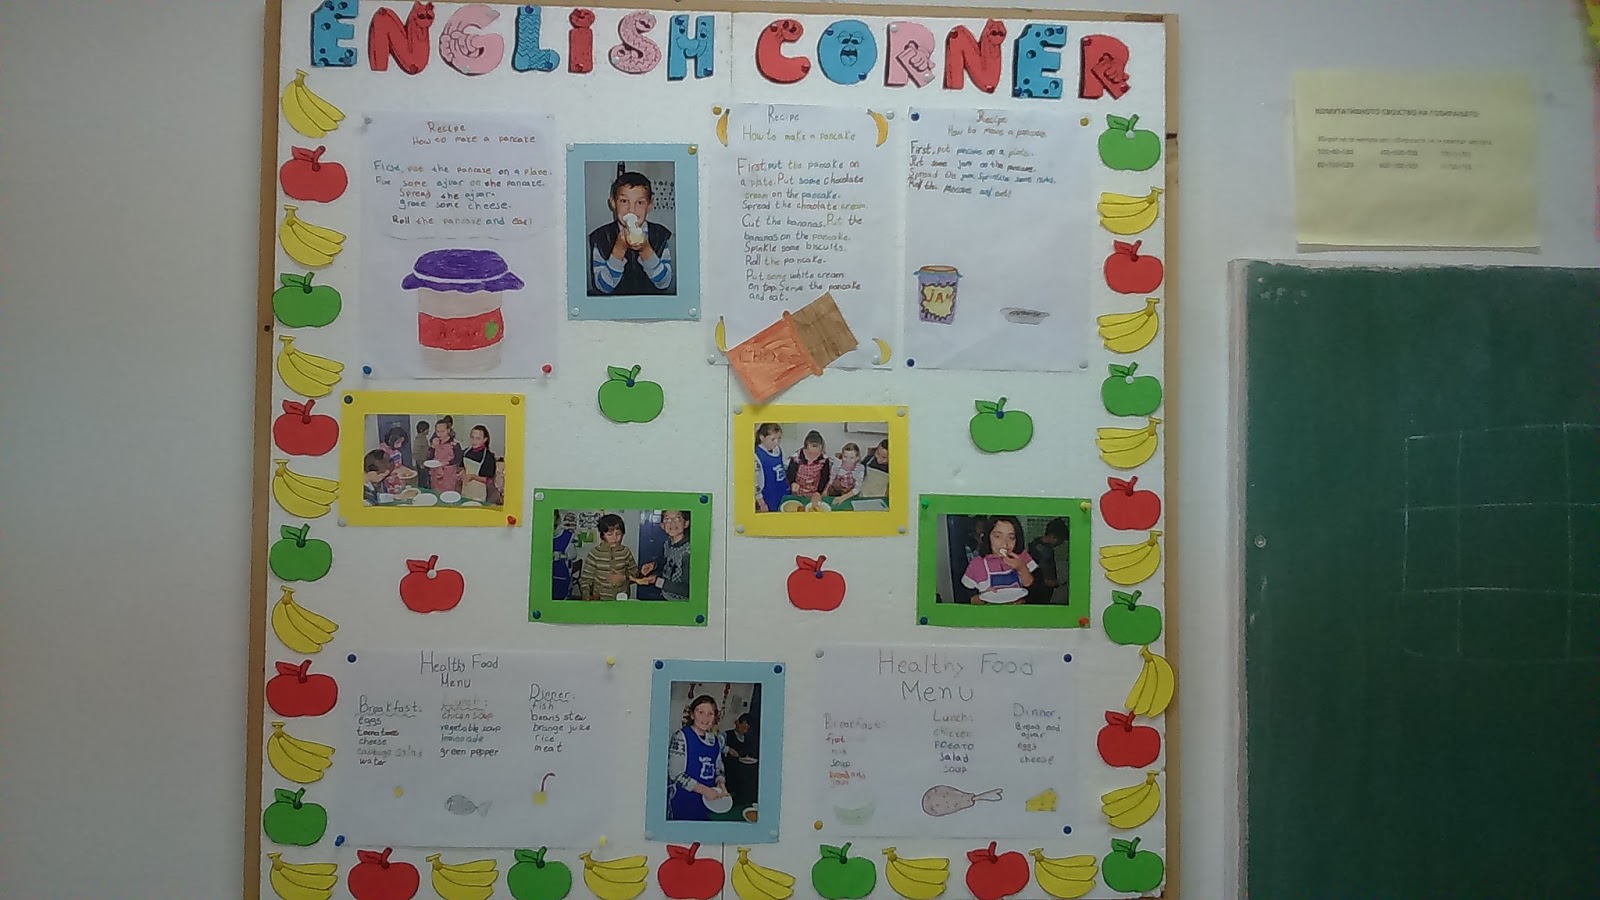 ENGLISH CORNER
Recipe
How to make a pancake
First, put the pancake on a plate.
Put some ajvar on the pancake.
Spread the ajvar.
grate some cheese.
Roll the pancake and eat!
Recipe
How to make a pancake
First, put the pancake on
a plate. Put some chocolate
cream on the pancake.
Spread the chocolate cream.
Cut the bananas. Put the
bananas on the pancake.
Sprinkle some biscuits.
Roll the pancake.
Put some white cream
on top. Serve the pancake
and eat.
Recipe
How to make a pancake
First, put pancake on a plate.
Put some jam on the pancake.
Spread the jam. Sprinkle some nuts.
Roll the pancake and eat!
JAM
КОМУТАТИВНОТО СВОЈСТВО НА СОБИРАЊЕТО
Healthy Food
Menu
Breakfast:
eggs
tomatoes
cheese
water
Lunch:
chicken soup
vegetable soup
lemonade
green pepper
Dinner:
fish
beans stew
orange juice
rice
meat
Healthy Food
Menu
Breakfast:
soup
bread and
jam
Lunch:
chicken
potato
salad
soup
Dinner:
Bread and
ajvar
eggs
cheese